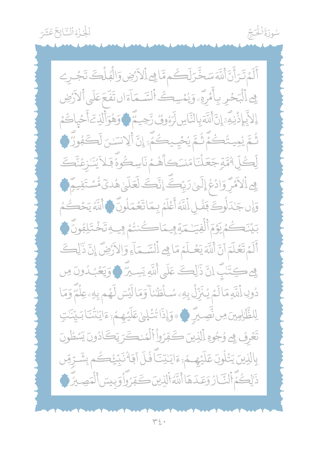 سُورَةُ الْحَجِّ
الجُزْءُ السَّابِعَ عَشَرَ
أَلَمْ تَرَ أَنَّ اللَّهَ سَخَّرَ لَكُم مَّا فِي الْأَرْضِ وَالْفُلْكَ تَجْرِي
فِي الْبَحْرِ بِأَمْرِهِ وَيُمْسِكُ السَّمَاءَ ان تَقَعَ عَلَى الْأَرْضِ
إِلَّا بِإِذْنِهِ إِنَّ اللَّهَ بِالنَّاسِ لَرَءُوفٌ رَّحِيمٌ وَهُوَ الَّذِي أَحْيَاكُمْ
ثُمَّ يُمِيتُكُمْ ثُمَّ يُحْيِيكُمْ إِنَّ الْإِنسَانَ لَكَفُورٌ
لِكُلِّ أُمَّةٍ جَعَلْنَا مَنسَكًا هُمْ نَاسِكُوهُ فَلَا يُنَازِعُنَّكَ
فِي الْأَمْرِ وَادْعُ إِلَىٰ رَبِّكَ إِنَّكَ لَعَلَىٰ هُدًى مُّسْتَقِيمٍ
وَإِن جَادَلُوكَ فَقُلِ اللَّهُ أَعْلَمُ بِمَا تَعْمَلُونَ اللَّهُ يَحْكُمُ
بَيْنَكُمْ يَوْمَ الْقِيَامَةِ فِيمَا كُنتُمْ فِيهِ تَخْتَلِفُونَ
أَلَمْ تَعْلَمْ أَنَّ اللَّهَ يَعْلَمُ مَا فِي السَّمَاءِ وَالْأَرْضِ إِنَّ ذَٰلِكَ
فِي كِتَابٍ إِنَّ ذَٰلِكَ عَلَى اللَّهِ يَسِيرٌ وَيَعْبُدُونَ مِن
دُونِ اللَّهِ مَا لَمْ يُنَزِّلْ بِهِ سُلْطَانًا وَمَا لَيْسَ لَهُم بِهِ عِلْمٌ وَمَا
لِلظَّالِمِينَ مِن نَّصِيرٍ وَإِذَا تُتْلَىٰ عَلَيْهِمْ ءَايَاتُنَا بَيِّنَاتٍ
تَعْرِفُ فِي وُجُوهِ الَّذِينَ كَفَرُوا الْمُنكَرَ يَكَادُونَ يَسْطُونَ
بِالَّذِينَ يَتْلُونَ عَلَيْهِمْ ءَايَاتِنَا قُلْ أَفَأُنَبِّئُكُم بِشَرٍّ مِّن
ذَٰلِكُمُ النَّارُ وَعَدَهَا اللَّهُ الَّذِينَ كَفَرُوا وَبِيسَ الْمَصِيرُ
٣٤٠